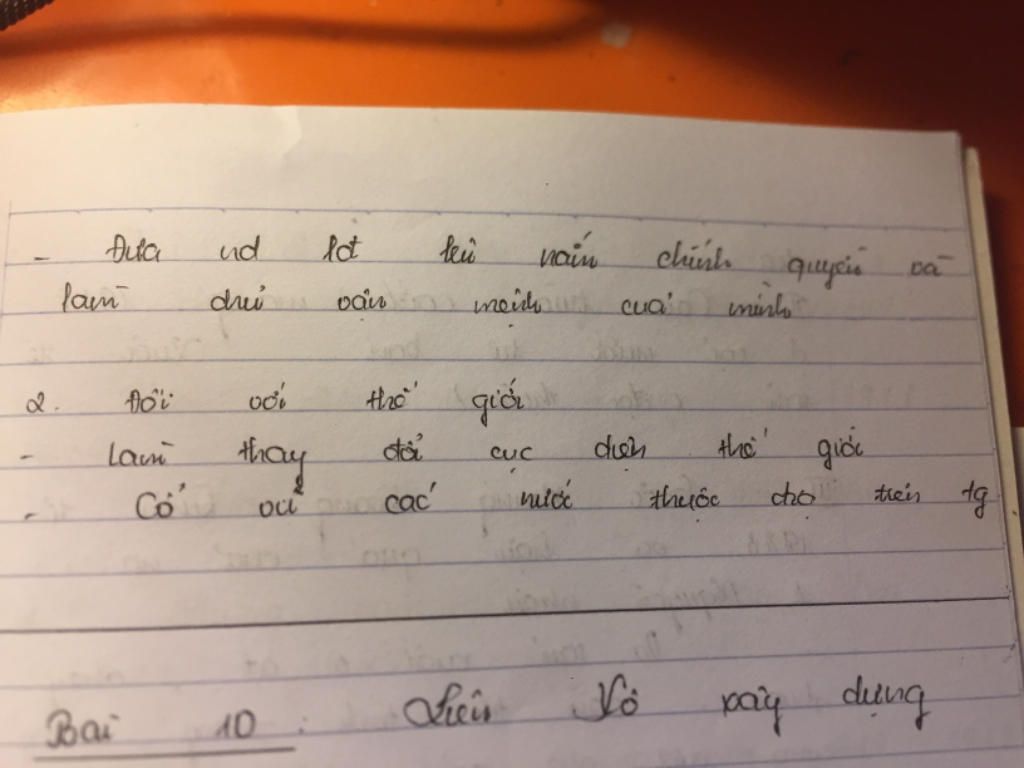 - Đưa nd lđ lên nắm chính quyền và
làm chủ vận mệnh của mình
2. Đối với thế giới
- Làm thay đổi cục diện thế giới
- Cổ vũ các nước thuộc địa trên tg
Bài 10 : Liên Xô xây dựng